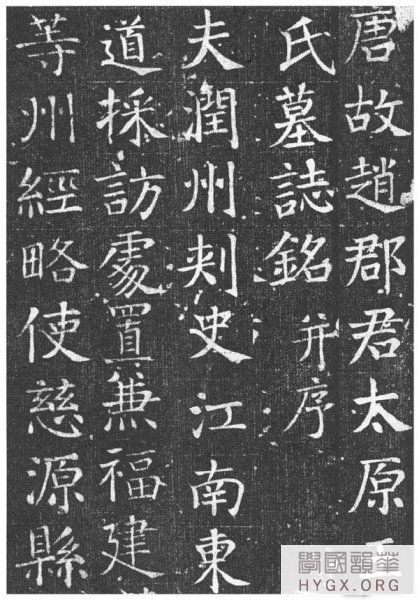 唐故趙郡君太原
氏墓誌銘并序
夫潤州刾史江南東
道採訪處置兼福建
等州經略使慈源縣
華韻國學
HYGX.ORG